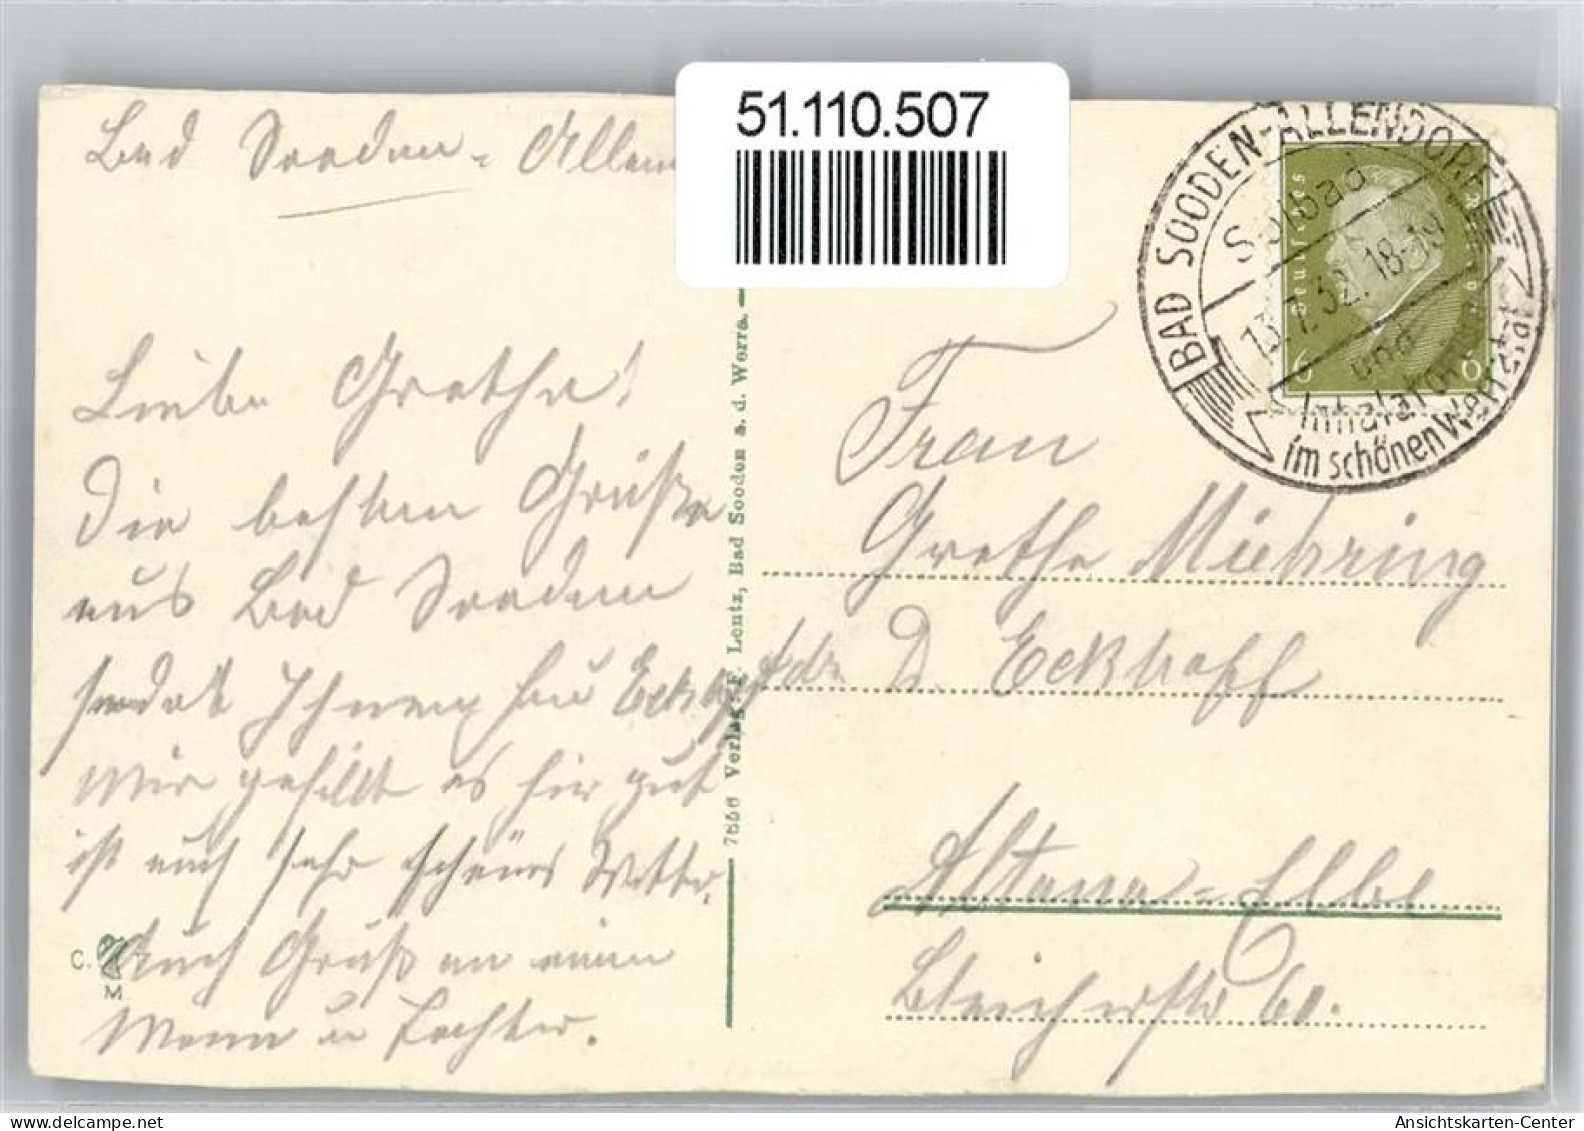 51.110.507
Bad Sooden-Allen
Liebe Grethe!
Die besten Grüße
aus Bad Sooden
sendet Ihnen Frau Eckhoff
Mir gefällt es hier gut
ist auch sehr schönes Wetter.
Auch Gruß an Ihren
Mann u Tochter.
C. M
7656 Verlag: F. Lentz, Bad Sooden a. d. Werra.
BAD SOODEN-ALLENDORF
Solbad
13.7.32. 18-19
und
Inhalatorium
im schönen Werratal
Deutsches Reich
6 6
Frau
Grethe Mühring
adr. D. Eckhoff
Altona-Elbe
Bleicherstr 60.
Ansichtskarten-Center